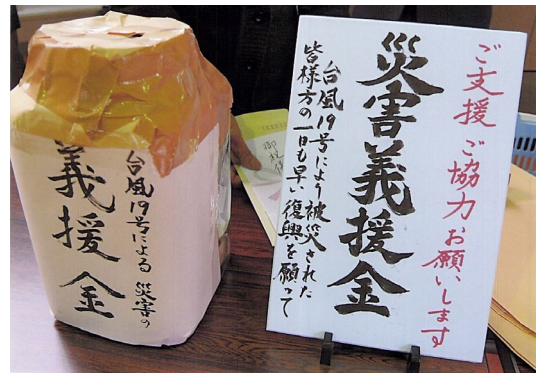 台風19号による災害の
義援金
ご支援ご協力お願いします
災害義援金
台風19号により被災された
皆様方の一日も早い復興を願って